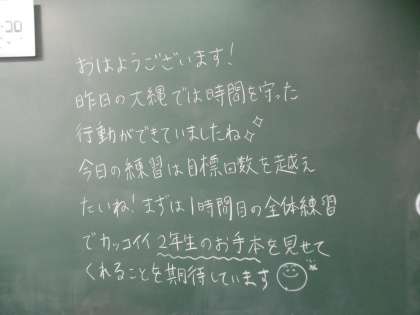 コロ
おはようございます!
昨日の大縄では時間を守った
行動ができていましたね
今日の練習は目標回数を越え
たいね!まずは1時間目の全体練習
でカッコイイ2年生のお手本を見せて
くれることを期待しています